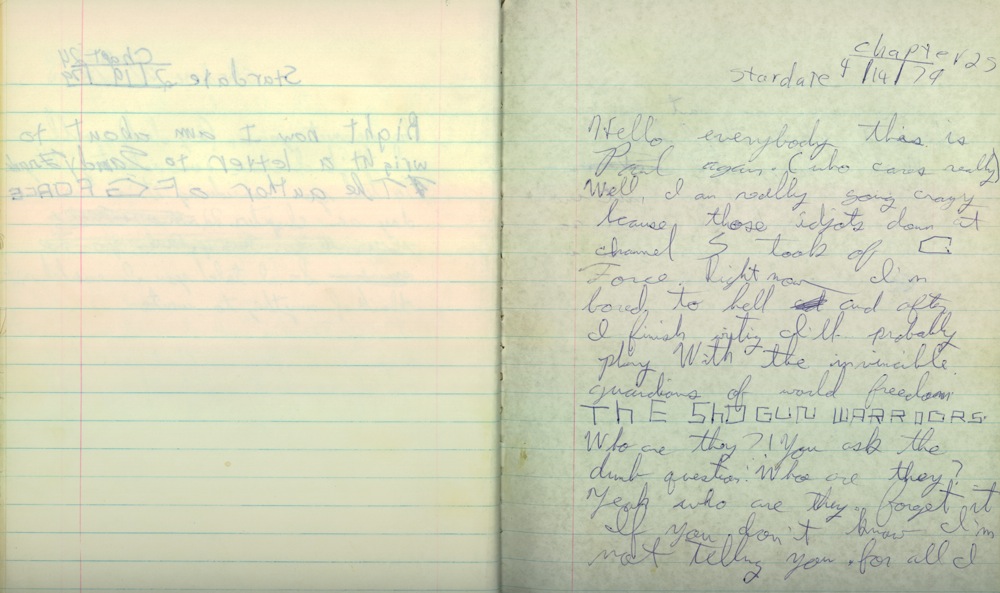 Chapt 24
Stardate 2/19/79
Right now I am about to
wright a letter to Sandy Frank
The author of G FORCE
chapter 25
stardate 4/14/79
Hello everybody this is
Paul again. (who cares really)
Well, I am really going crazy
because those idjots down at
channel 5 took of G
Force. Right now I'm
bored to hell and after
I finish I'll probably
play With the invincible
guardians of world freedom
THE SHOGUN WARRIORS.
Who are they?! You ask the
dumb question: Who are they?
Yeah who are they. forget it
If you don't know I'm
not telling you. for all I